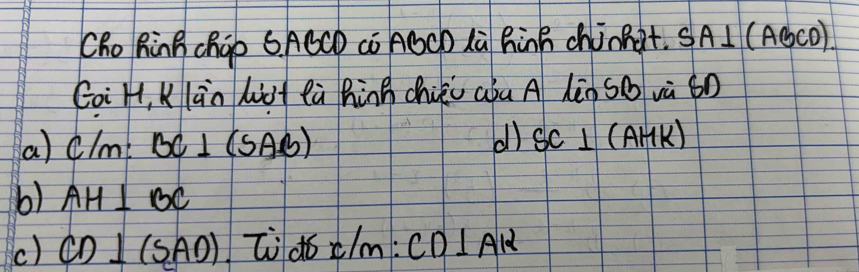 Cho hình chóp S.ABCD có ABCD là hình chữ nhật. SA ⊥ (ABCD).
Gọi H, K lần lượt là hình chiếu của A lên SB và SD
a) C/m: BC ⊥ (SAB) d) SC ⊥ (AHK)
b) AH ⊥ BC
c) CD ⊥ (SAD). Từ đó c/m: CD ⊥ AK